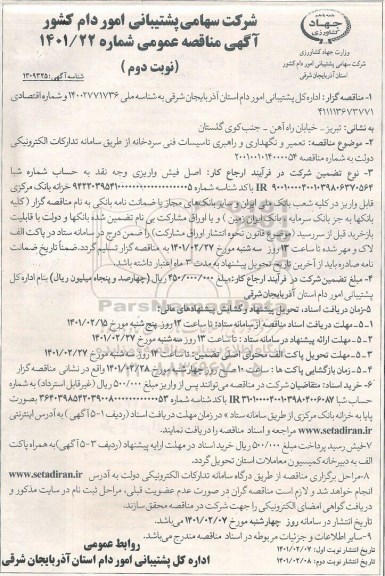 جهاد
کشاورزی
وزارت جهاد کشاورزی
شرکت سهامی پشتیبانی امور دام کشور
استان آذربایجان شرقی
شرکت سهامی پشتیبانی امور دام کشور
آگهی مناقصه عمومی شماره ۱۴۰۱/۲۲
(نوبت دوم)
شناسه آگهی: ۱۳۰۹۳۲۵
۱- مناقصه گزار: اداره کل پشتیبانی امور دام استان آذربایجان شرقی به شناسه ملی ۱۴۰۰۲۷۷۱۷۳۶ و شماره اقتصادی
۴۱۱۱۱۳۶۷۳۷۷۱
به نشانی: تبریز - خیابان راه آهن - جنب کوی گلستان
۲- موضوع مناقصه: تعمیر و نگهداری و راهبری تاسیسات فنی سردخانه از طریق سامانه تدارکات الکترونیکی
دولت به شماره مناقصه ۲۰۰۱۰۰۱۰۱۴۰۰۰۰۵۴
۳- نوع تضمین شرکت در فرآیند ارجاع کار: اصل فیش واریزی وجه نقد به حساب شماره شبا
قابل واریز در کلیه شعب بانک های ایران و جه یا بانکهای مجاز یا ضمانت نامه بانکی به نام مناقصه گزار (کلیه
بانکها به جز بانک سرمایه و بانک ایران زمین) و یا اوراق مشارکت بی نام تضمین شده بانکها و دولت با قابلیت
بازخرید قبل از سررسید (موضوع قانون نحوه انتشار اوراق مشارکت) را ضمن درج در سامانه ستاد در پاکت الف
لاک و مهر شده تا ساعت ۱۳ روز سه شنبه مورخ ۱۴۰۱/۰۲/۲۷ به مناقصه گزار تسلیم گردد. ضمناً تاریخ ضمانت
نامه صادره باید از آخرین تاریخ تحویل پیشنهاد به مدت ۳ ماه اعتبار داشته باشد.
۴- مبلغ تضمین شرکت در فرآیند ارجاع کار: مبلغ ۴۵۰/۰۰۰/۰۰۰ ریال (چهارصد و پنجاه میلیون ریال) بنام اداره کل
پشتیبانی امور دام استان آذربایجان شرقی
۵- زمان دریافت اسناد، تحویل پیشنهاد و گشایش پیشنهادهای مالی:
۱-۵- مهلت دریافت اسناد مناقصه از سامانه ستاد: تا ساعت ۱۳ روز پنج شنبه مورخ ۱۴۰۱/۰۲/۱۵
۲-۵- مهلت ارائه پیشنهاد در سامانه ستاد: تا ساعت ۱۳ روز سه شنبه مورخ ۱۴۰۱/۰۲/۲۷
۳-۵- مهلت تحویل پاکت الف محتوای اصل تضمین: تا ساعت ۱۳ روز سه شنبه مورخ ۱۴۰۱/۰۲/۲۷
۴-۵- زمان بازگشایی پاکت ها: ساعت ۱۰ صبح روز چهارشنبه مورخ ۱۴۰۱/۰۲/۲۸ واقع در نشانی مناقصه گزار
۶- خرید اسناد: متقاضیان شرکت در مناقصه می توانند پس از واریز مبلغ ۵۰۰/۰۰۰ ریال (غیرقابل استرداد) به شماره
پایا به خزانه بانک مرکزی از طریق سامانه ستاد» در زمان مهلت دریافت اسناد (ردیف ۱-۵ آگهی) به آدرس اینترنتی
www.setadiran.ir مراجعه و اسناد مناقصه را دریافت نمایند.
۷- فیش رسید پرداخت مبلغ ۵۰۰/۰۰۰ ریال خرید اسناد در مهلت ارایه پیشنهاد (ردیف ۳-۵ آگهی) به همراه پاکت
الف به دبیرخانه کمیسیون معاملات استان تحویل گردد.
۸- مراحل برگزاری مناقصه از طریق درگاه سامانه تدارکات الکترونیکی دولت به آدرس www.setadiran.ir
انجام خواهد شد و لازم است مناقصه گران در صورت عدم عضویت قبلی، مراحل ثبت نام در سایت مذکور و
دریافت گواهی امضای الکترونیکی را جهت شرکت در مناقصه محقق سازند.
تاریخ انتشار در سامانه روز چهارشنبه مورخ ۱۴۰۱/۰۲/۰۷ می باشد.
۹- سایر اطلاعات و جزئیات مربوطه در اسناد مناقصه مندرج می باشد.
تاریخ انتشار نوبت اول: ۱۴۰۱/۰۲/۰۷
تاریخ انتشار نوبت دوم: ۱۴۰۱/۰۲/۰۸
روابط عمومی
اداره کل پشتیبانی امور دام استان آذربایجان شرقی